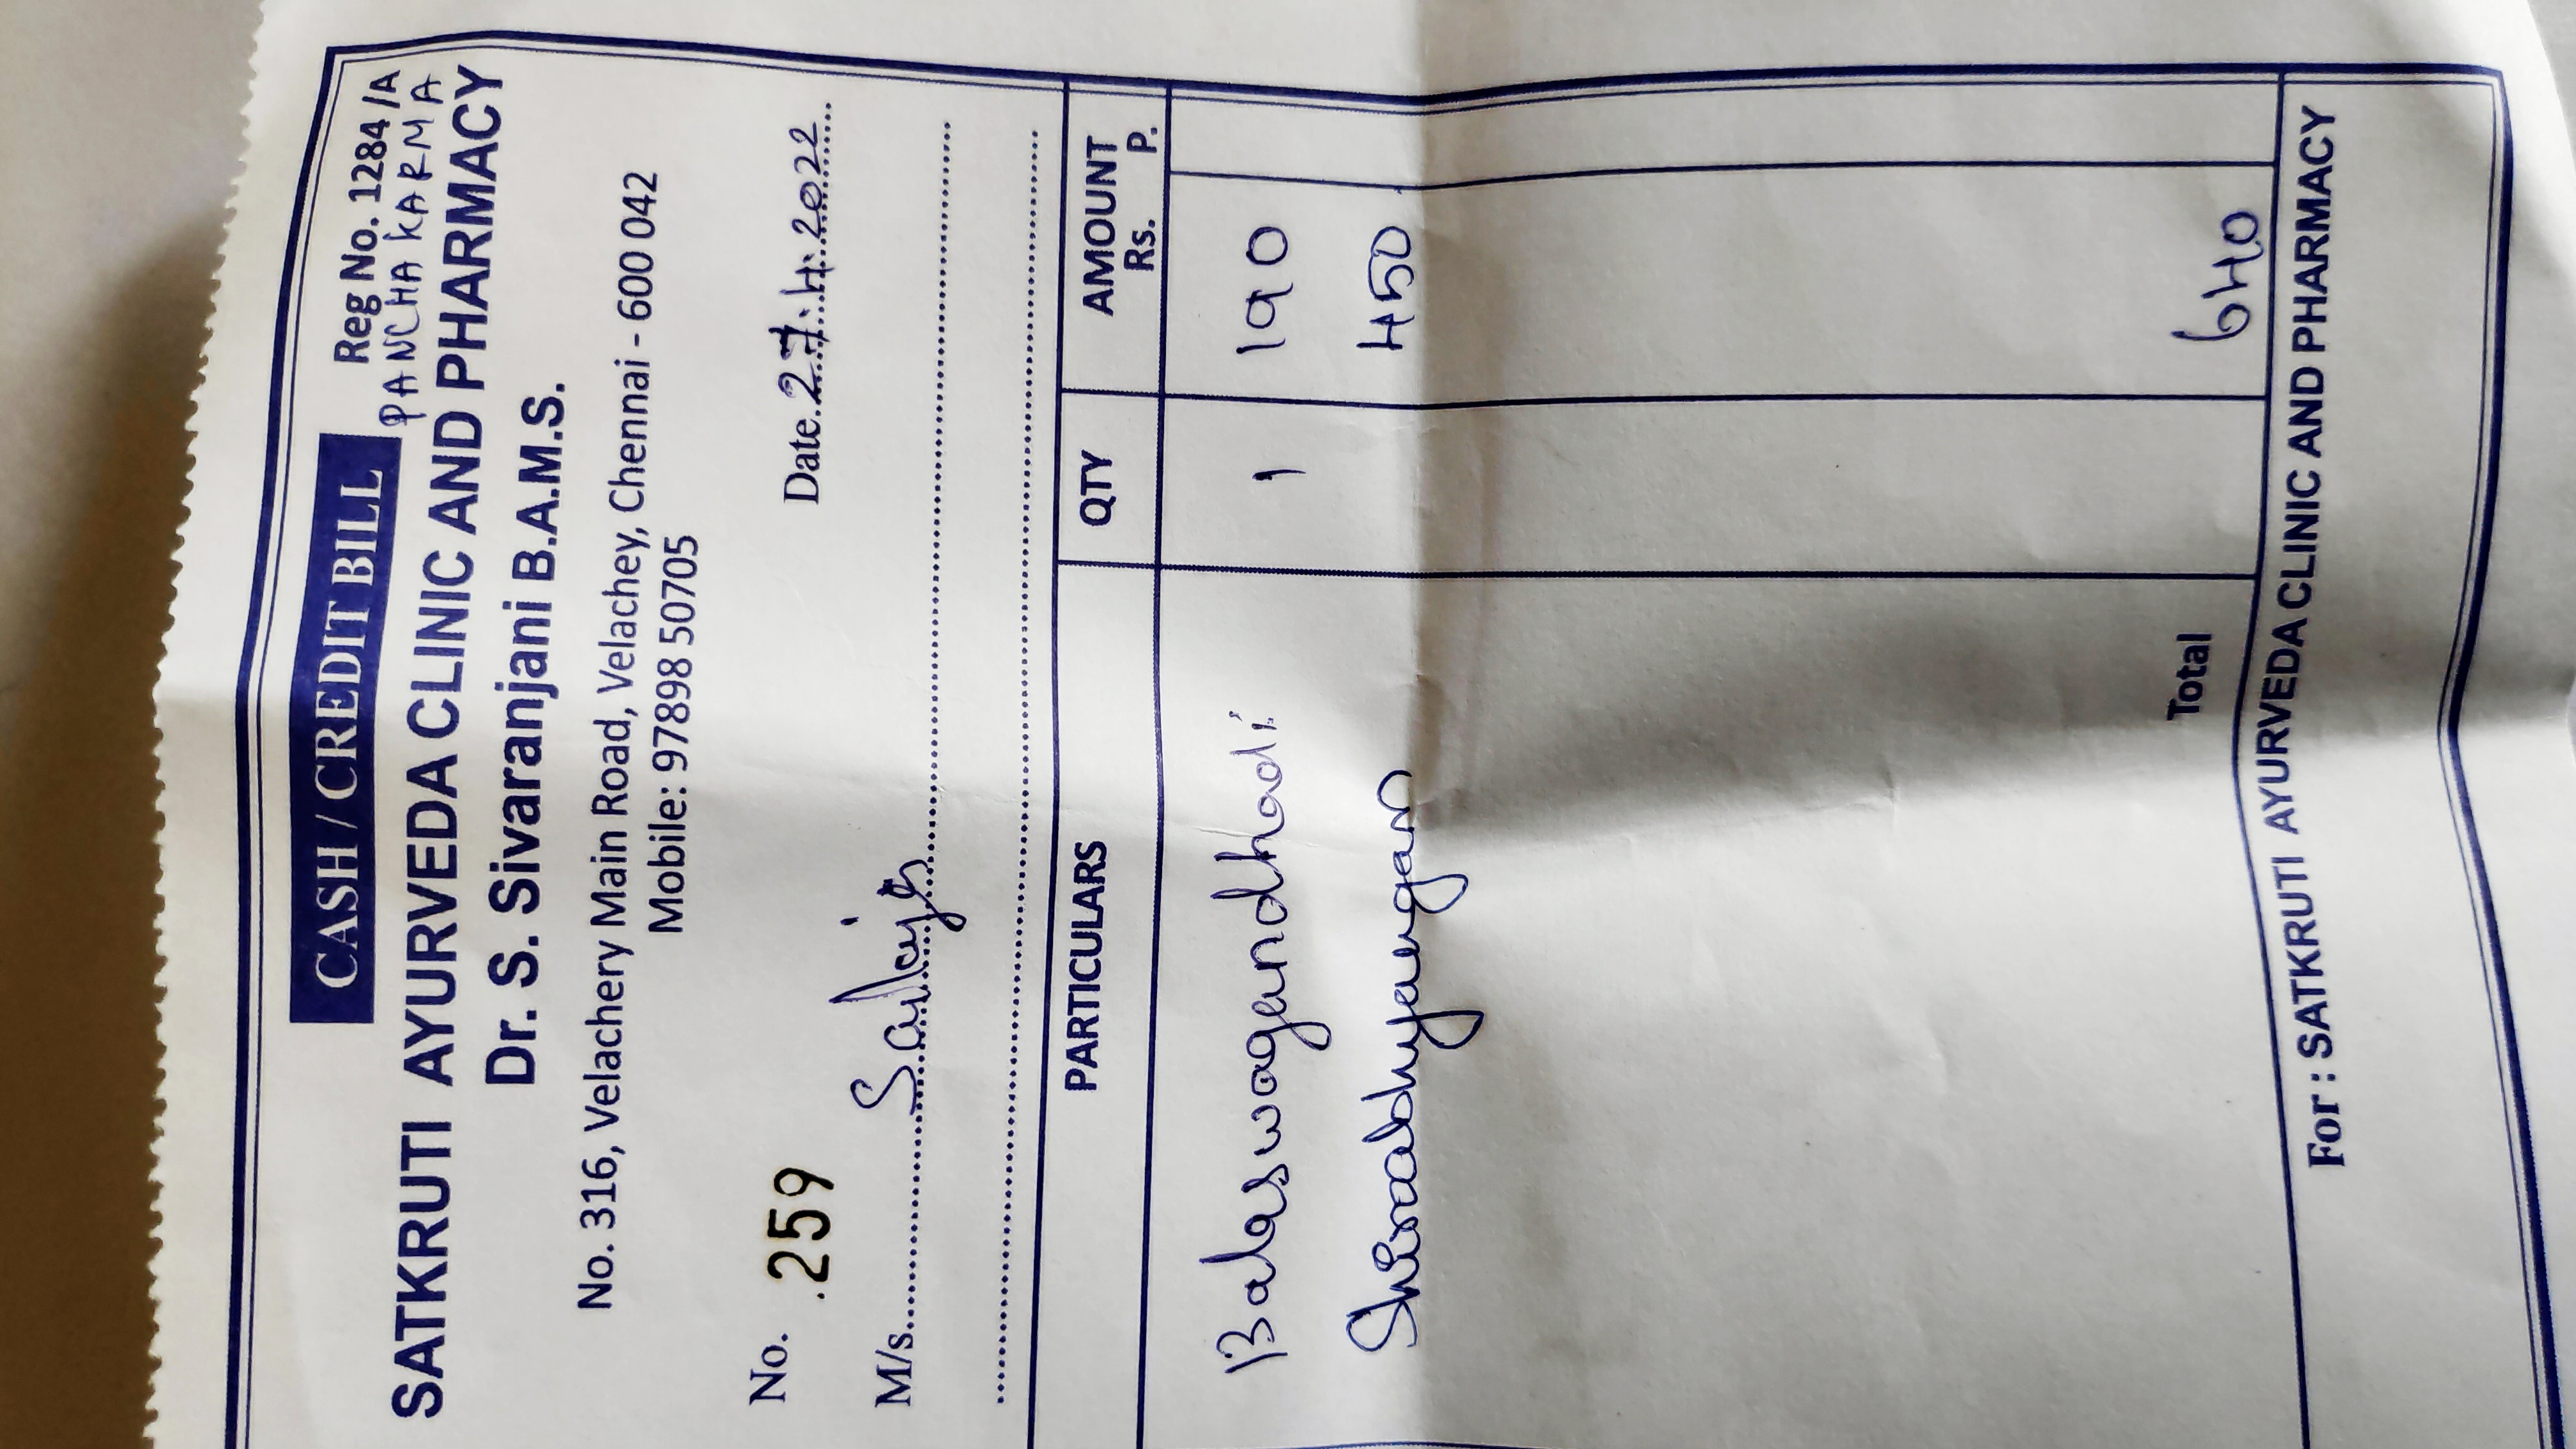 CASH / CREDIT BILL
Reg No. 1284 /A
PANCHA KARMA
SATKRUTI AYURVEDA CLINIC AND PHARMACY
Dr. S. Sivaranjani B.A.M.S.
No. 316, Velachery Main Road, Velachey, Chennai - 600 042
Mobile: 97898 50705
No. 259 Date. 27.4.2022
M/s. Sailaja
PARTICULARS QTY AMOUNT
Rs. P.
Balaswagandhadi 1 190
Shiroabhyangam 450
Total 640
For : SATKRUTI AYURVEDA CLINIC AND PHARMACY